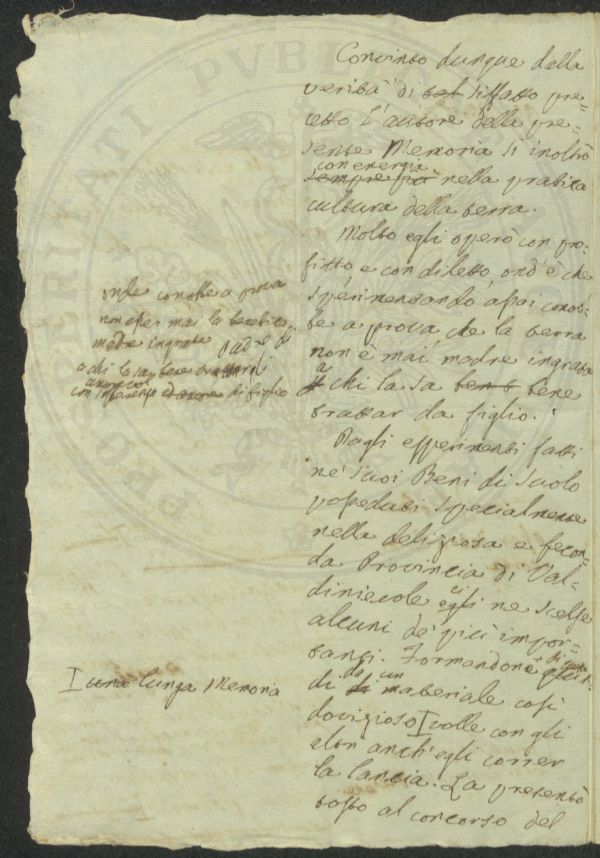 PROSPERITATI PVBLICAE
Convinto dunque della
verità di siffatto pre-
cetto l'autore della pre-
sente Memoria si inoltrò
con energia
sempre più nella pratica
cultura della terra.
Molto egli operò con pro-
fitto e con diletto, ond'è che
sperimentando assai conob-
be a prova, che la terra
non è mai madre ingrata
a chi la sa bene
trattar da figlio.
Dagli esperimenti fatti
ne' suoi Beni di suolo
posseduti specialmente
nella deliziosa e fecon-
da Provincia di Val-
dinievole egli ne scelse
alcuni de' più impor-
tanti. Formandone
di da un materiale così
dovizioso volle con gli
altri anch'egli correr
la lancia. La presentò
tosto al concorso del
onde conobbe a prova
non esser mai la terra
madre ingrata
a chi la sa bene
con di figlio
una lunga Memoria